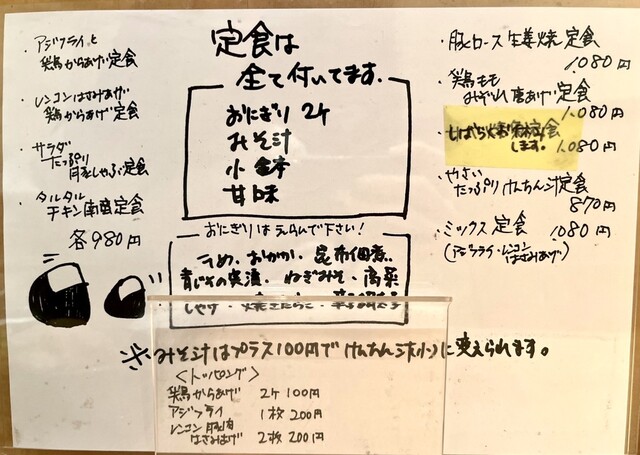 ・アジフライと
鶏からあげ定食
・レンコンはさみあげ
鶏からあげ定食
・サラダ
たっぷり
豚しゃぶ定食
・タルタル
チキン南蛮定食
各980円
定食は
全て付いてます。
おにぎり 2ケ
みそ汁
小鉢
甘味
おにぎりはえらんで下さい!
うめ、おかか、昆布佃煮、
青じその実漬、ねぎみそ・高菜
しゃけ・焼きたらこ・辛子明太子
・豚ロース生姜焼定食
1,080円
・鶏もも
みぞれ唐あげ定食
1,080円
します。
1,080円
・やさい
たっぷりけんちん汁定食
870円
・ミックス定食 1,080円
(アジフライ・レンコン
はさみあげ)
※みそ汁はプラス100円でけんちん汁(小)に変えられます。
〈トッピング〉
鶏からあげ 2ケ 100円
アジフライ 1枚 200円
レンコン豚肉
はさみあげ 2枚 200円